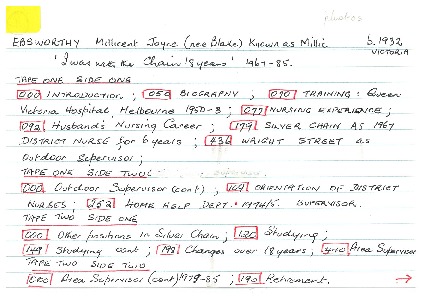 EBSWORTHY Millicent Joyce (nee Blake) Known as Millie b. 1932
VICTORIA
'I was with the Chain 18 years' 1967-85.
TAPE ONE SIDE ONE
000 INTRODUCTION ; 054 BIOGRAPHY ; 070 TRAINING: Queen
Victoria Hospital, Melbourne 1950-3 ; 077 NURSING EXPERIENCE ;
092 Husband's Nursing Career ; 179 SILVER CHAIN AS 1967
DISTRICT NURSE for 6 years ; 436 WRIGHT STREET as
Outdoor Supervisor ;
TAPE ONE SIDE TWO
000 Outdoor Supervisor (cont) ; 169 ORIENTATION OF DISTRICT
NURSES ; 252 HOME HELP DEPT. 1974/5 SUPERVISOR.
TAPE TWO SIDE ONE
000 Other positions in Silver Chain ; 120 Studying ;
149 Studying cont ; 198 Changes over 18 years ; 410 Area Supervisor
TAPE TWO SIDE TWO
000 Area Supervisor (cont) 1979-85 ; 190 Retirement. →